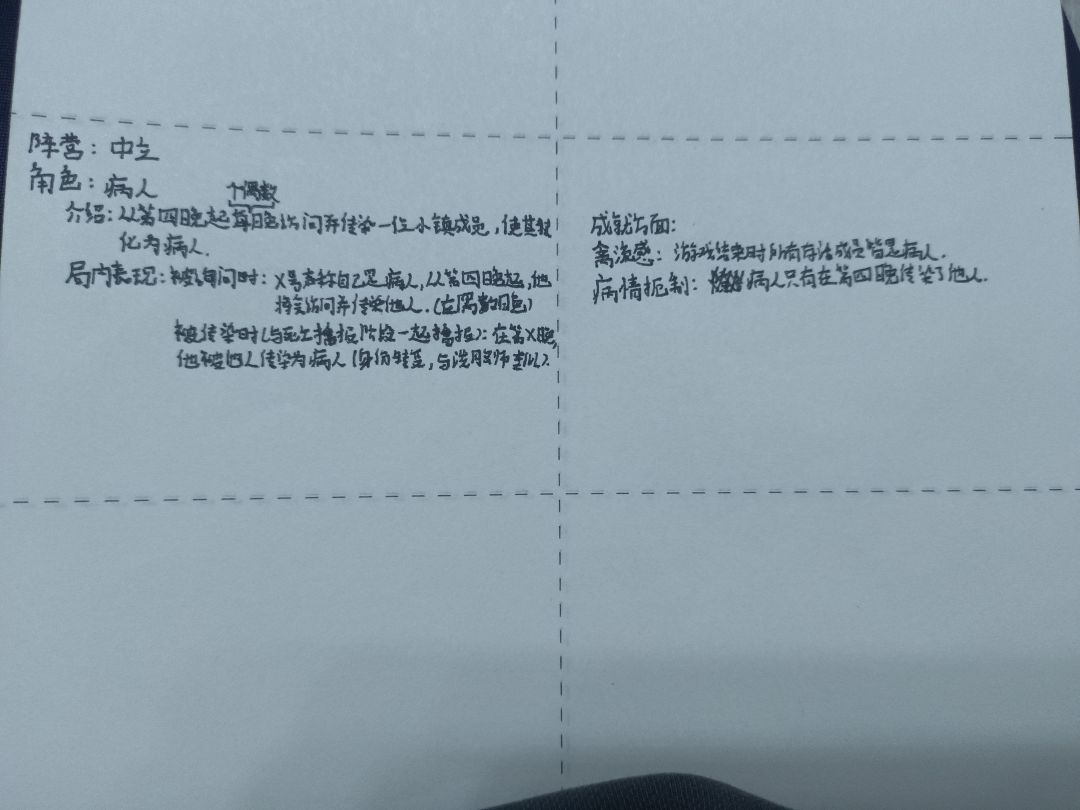 阵营：中立
角色：病人
个偶数
介绍：从第四晚起每晚访问并传染一位小镇成员，使其转
化为病人.
局内表现：被询问时：X号声称自己是病人，从第四晚起，他
将会访问并传染他人.（在偶数日色）
被传染时（与死亡播报阶段一起播报）：在第X晚，
他被他人传染为病人（身份转变，与洗脑师类似）.
成就方面：
禽流感：游戏结束时所有存活成员皆是病人.
病情扼制：病人只有在第四晚传染了他人.